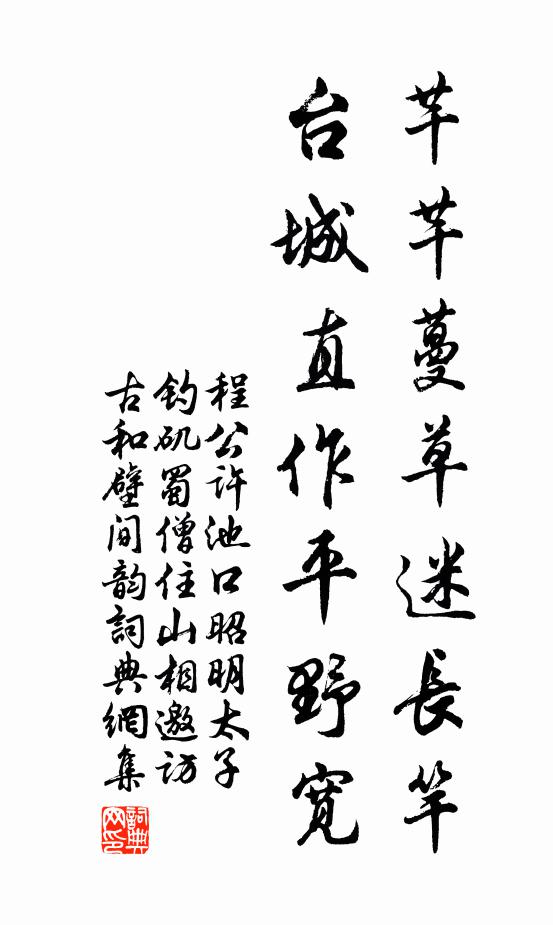 芊芊蔓草迷長竿
台城直作平野寬
程公許池口昭明太子
釣矶蜀僧住山相邀訪
古和壁间韵詞典網集
詞典网印